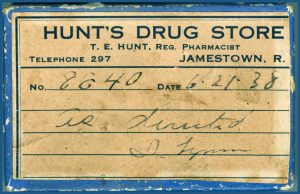 HUNT'S DRUG STORE
T. E. HUNT, REG. PHARMACIST
TELEPHONE 297 JAMESTOWN, R.
NO. 8640 DATE 6-21-38
as directed